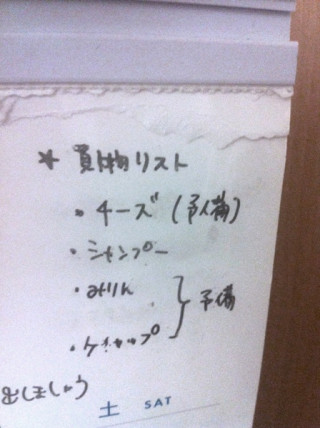 * 買物リスト
・チーズ (予備)
・シャンプー
・みりん
・ケチャップ } 予備
出しましょう
土 SAT